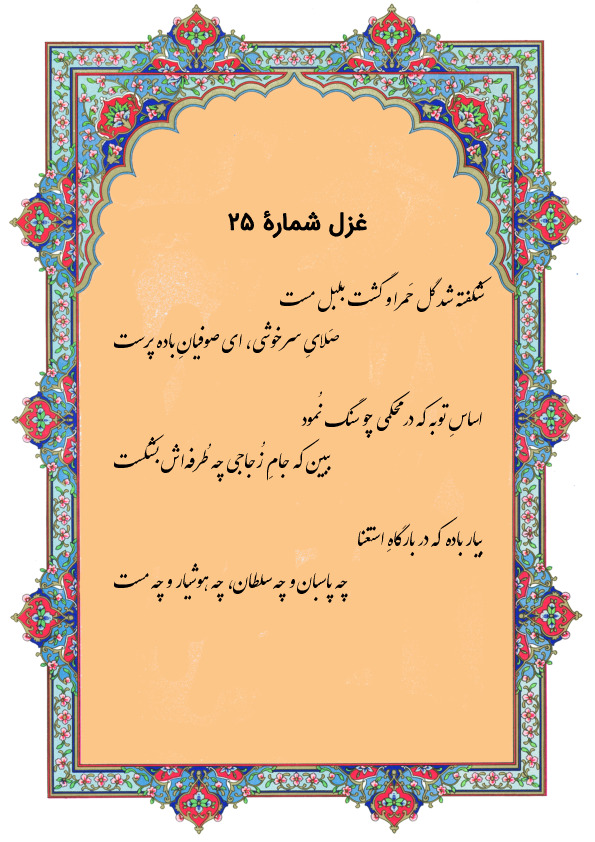 غزل شمارهٔ ۲۵
شکفته شد گل حَمرا و گشت بلبل مست
صَلایِ سرخوشی، ای صوفیانِ باده پرست
اساسِ توبه که در محکمی چو سنگ نُمود
ببین که جامِ زُجاجی چه طُرفه‌اش بشکست
بیار باده که در بارگاهِ استغنا
چه پاسبان و چه سلطان، چه هوشیار و چه مست